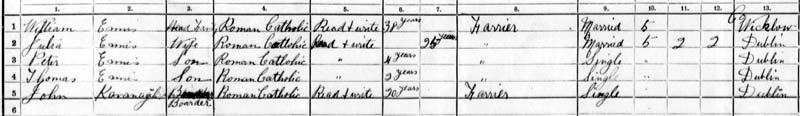 1. 2. 3. 4. 5. 6. 7. 8. 9. 10. 11. 12. 13.
1 William Ennis Head Family Roman Catholic Read & write 38 years Farrier Married 5 Co Wicklow
2 Julia Ennis Wife Roman Catholic Read & write 25 years " Married 5 2 2 Dublin
3 Peter Ennis Son Roman Catholic " 4 years " Single Dublin
4 Thomas Ennis Son Roman Catholic " 2 years " Single Dublin
5 John Kavanagh Boarder Roman Catholic Read & write 20 years Farrier Single Dublin
6 Boarder